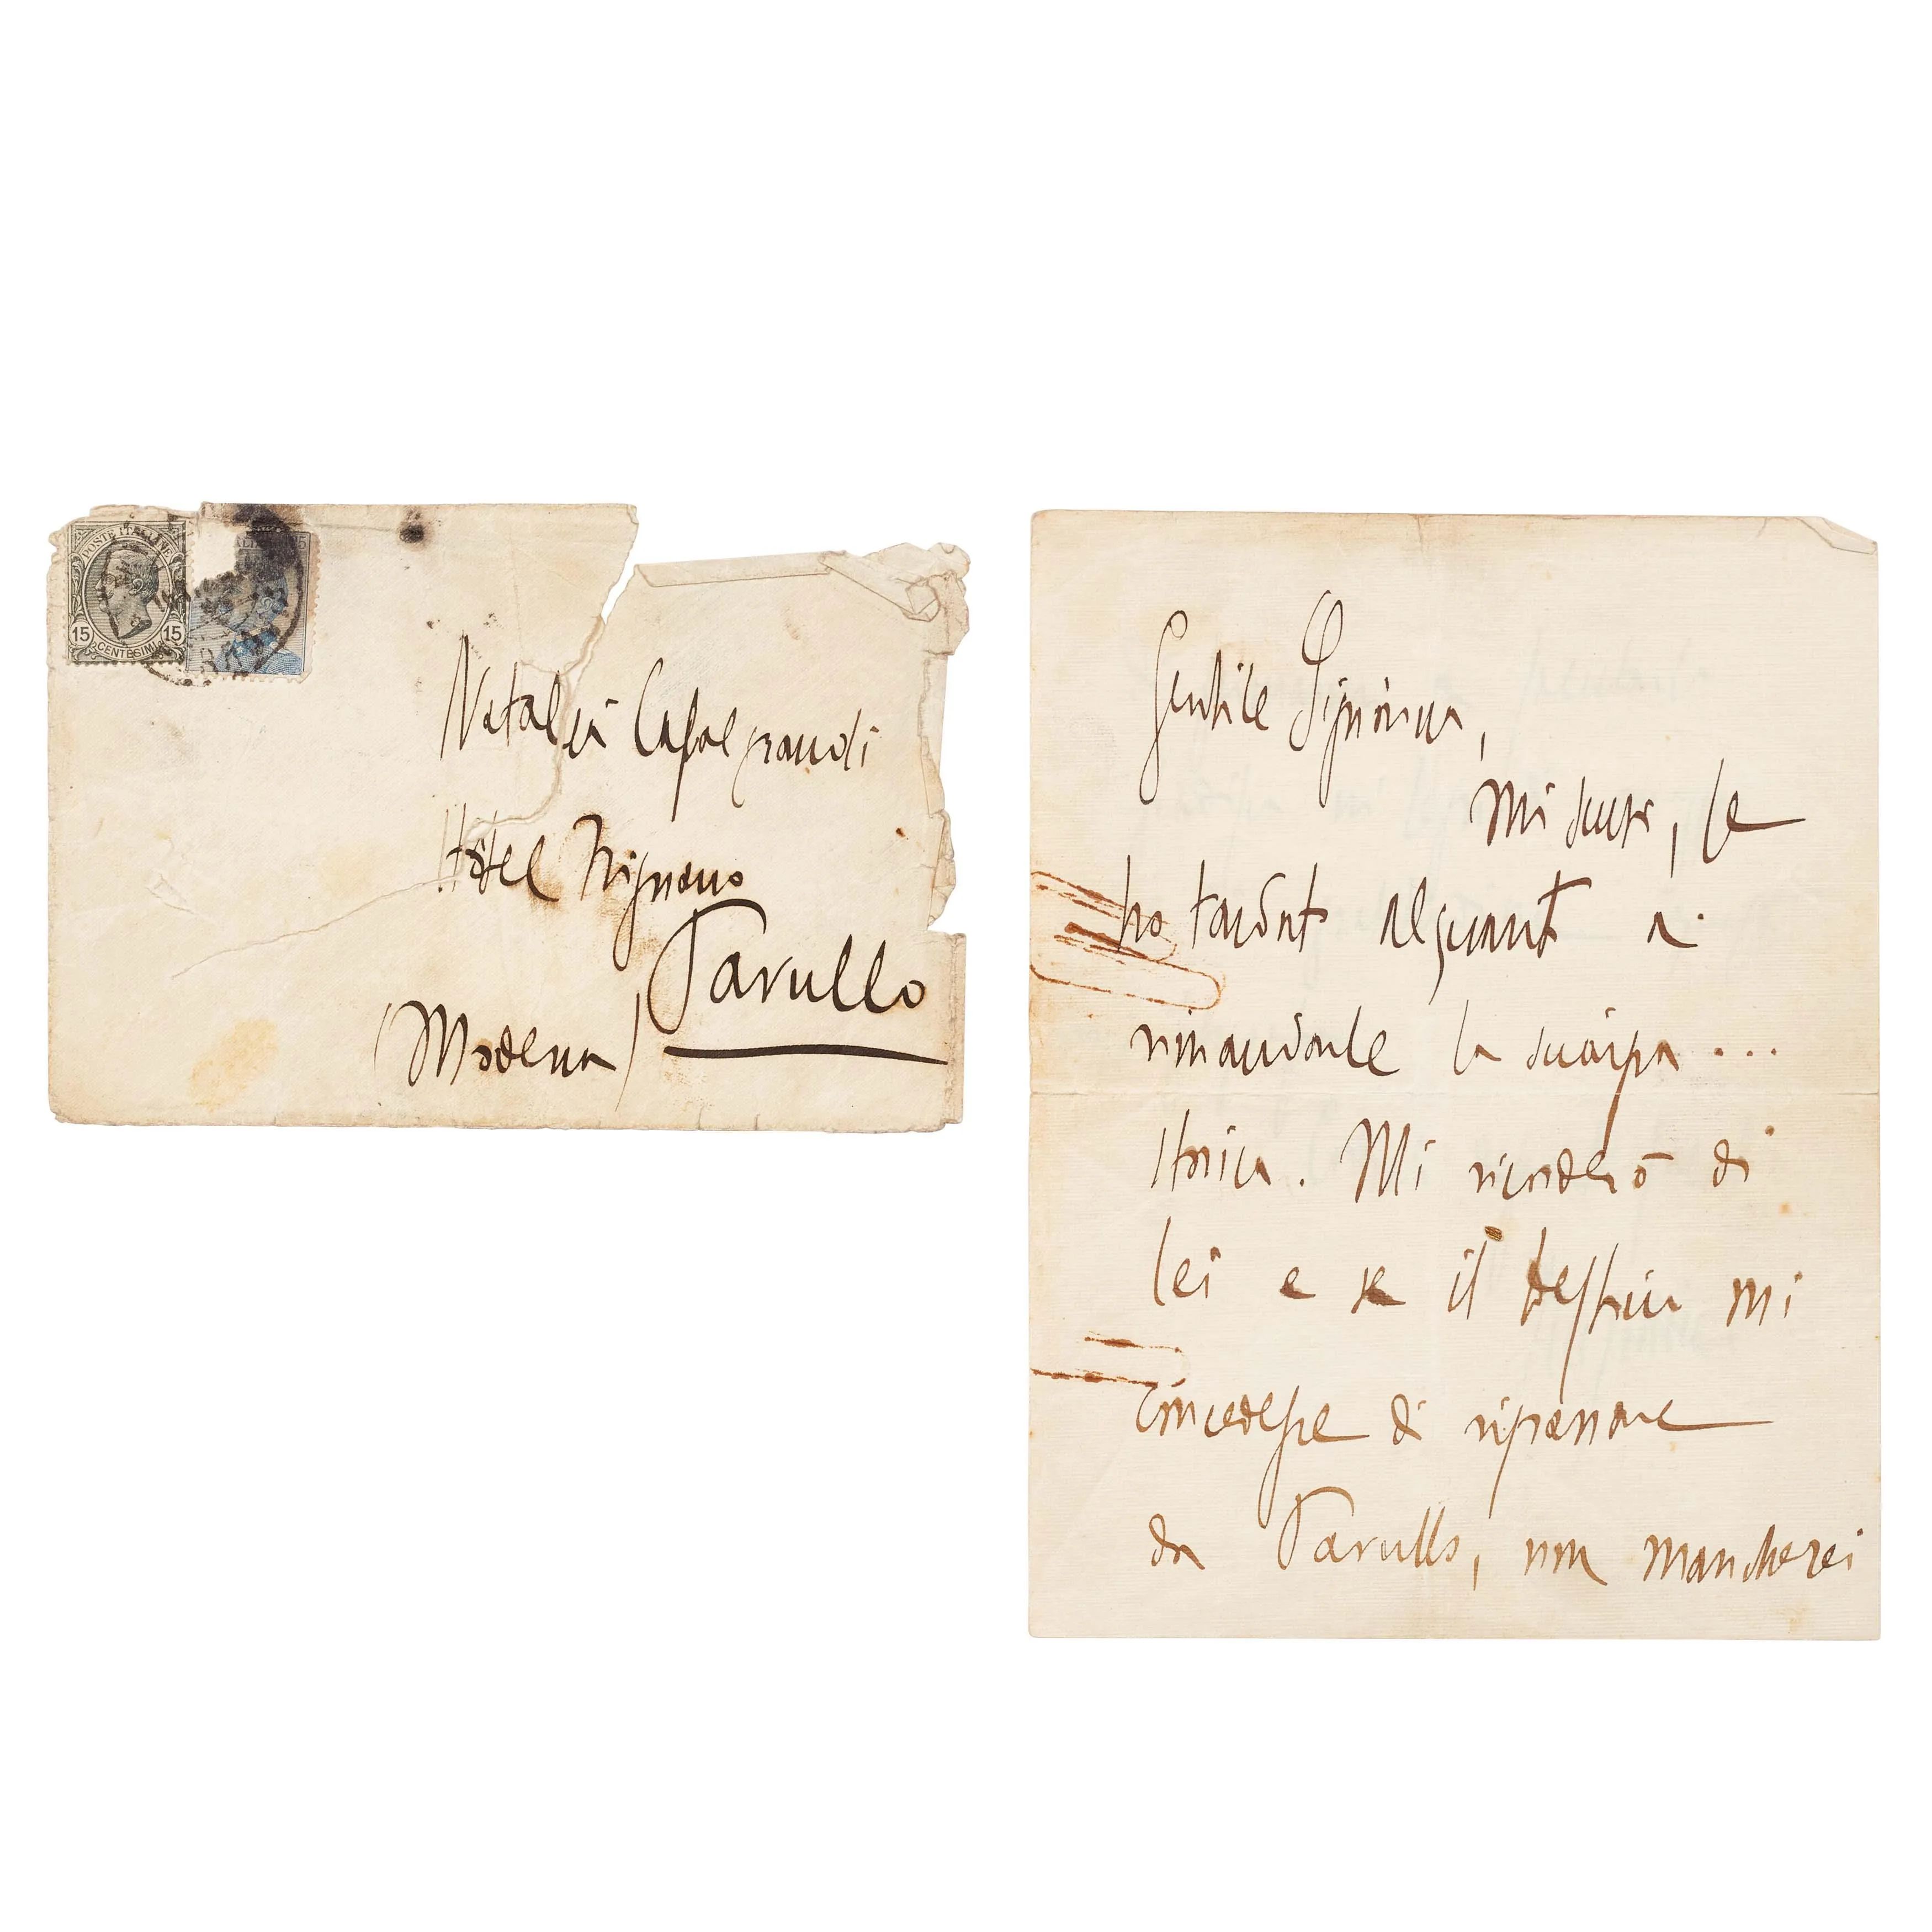 POSTE ITALIANE
15 15
CENTESIMI
Natalia Casalgrandi
Hôtel Mignano
Pavullo
(Modena)
Gentile Signorina,
Mi scusi, se
ho tardato alquanto a
rimandarle la sciarpa ...
storica. Mi ricorderò di
lei e se il destino mi
concedesse di ripassare
da Pavullo, non mancherei